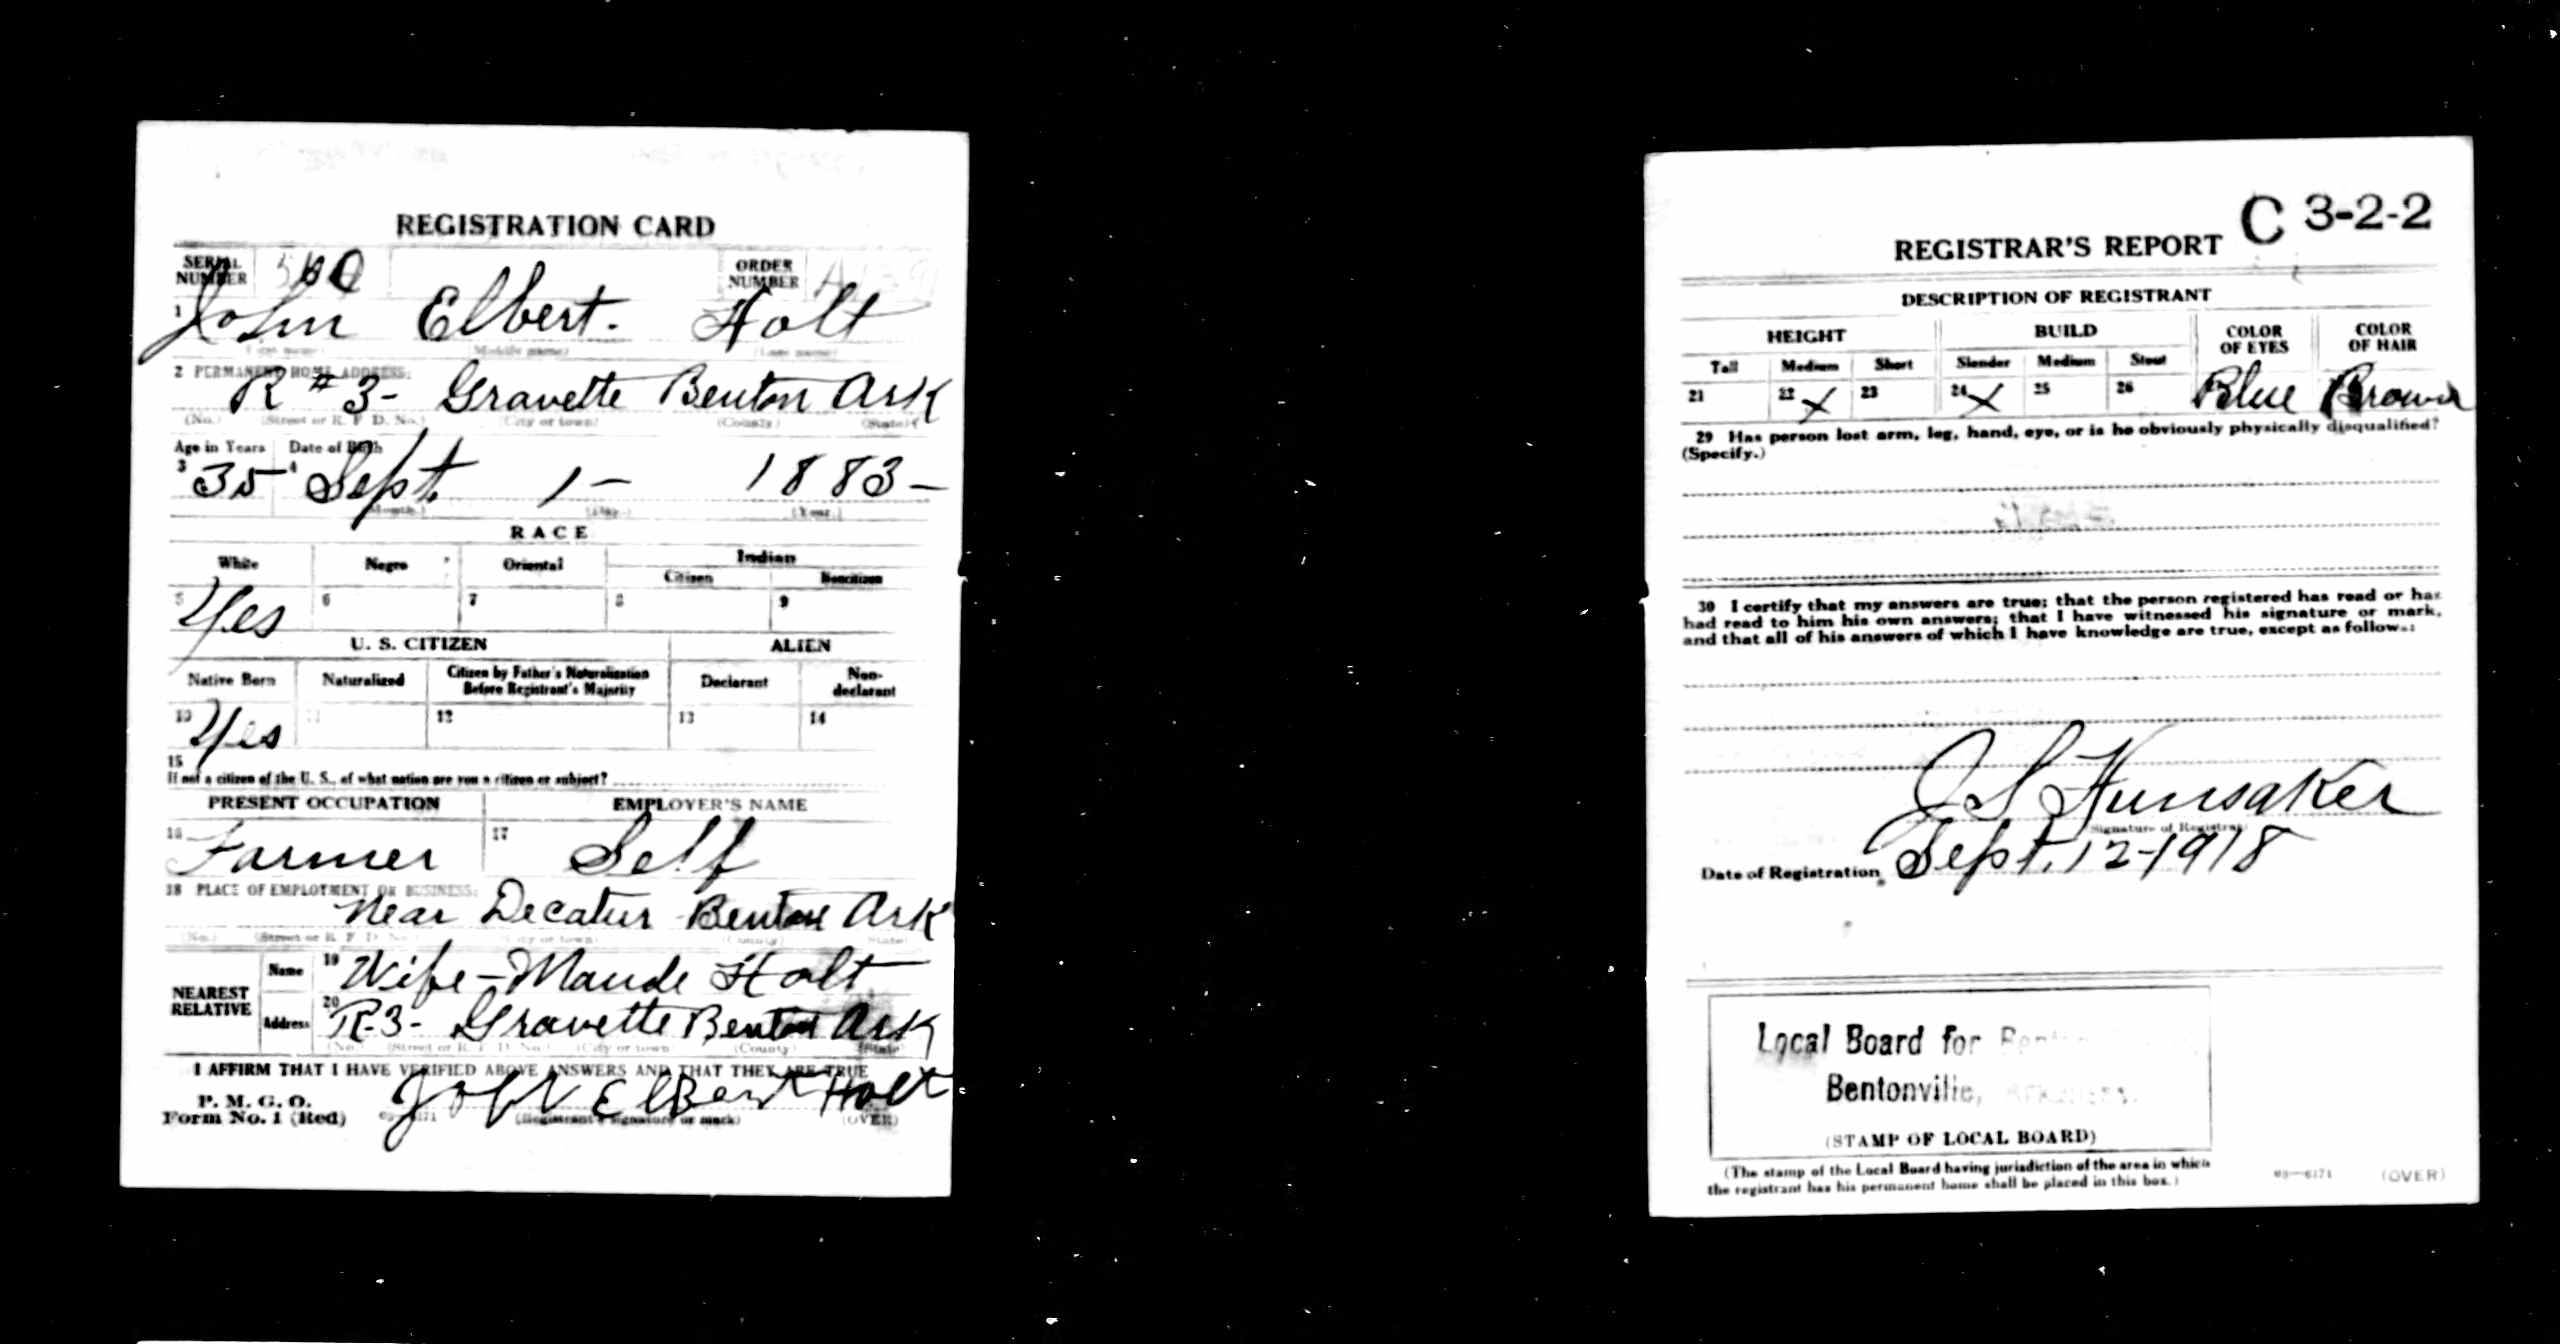 REGISTRATION CARD
SERIAL NUMBER
ORDER NUMBER
1 John Elbert. Holt
(Middle name) (Last name)
2 PERMANENT HOME ADDRESS:
R #3- Gravette Benton Ark
(No.) (Street or R. F. D. No.) (City or town) (County) (State)
Age in Years Date of Birth
3 35 4 Sept. 1- 1883-
(Month.) (Day.) (Year.)
RACE
White Negro Oriental Indian
Citizen Noncitizen
5 Yes 6 7 8 9
U. S. CITIZEN ALIEN
Native Born Naturalized Citizen by Father's Naturalization Before Registrant's Majority Declarant Non-declarant
10 Yes 11 12 13 14
15
If not a citizen of the U. S., of what nation are you a citizen or subject?
PRESENT OCCUPATION EMPLOYER'S NAME
16 Farmer 17 Self
18 PLACE OF EMPLOYMENT OR BUSINESS:
Near Decatur Benton Ark
(No.) (Street or R. F. D. No.) (City or town) (County) (State)
NEAREST RELATIVE
Name 19 Wife-Maude Holt
Address 20 R-3- Gravette Benton Ark
(No.) (Street or R. F. D. No.) (City or town) (County) (State)
I AFFIRM THAT I HAVE VERIFIED ABOVE ANSWERS AND THAT THEY ARE TRUE
P. M. G. O.
Form No. 1 (Red) John Elbert Holt
(Registrant's signature or mark) (OVER)
C 3-2-2
REGISTRAR'S REPORT
DESCRIPTION OF REGISTRANT
HEIGHT BUILD COLOR OF EYES COLOR OF HAIR
Tall Medium Short Slender Medium Stout
21 22 X 23 24 X 25 26 Blue Brown
29 Has person lost arm, leg, hand, eye, or is he obviously physically disqualified?
(Specify.)
30 I certify that my answers are true; that the person registered has read or has
had read to him his own answers; that I have witnessed his signature or mark,
and that all of his answers of which I have knowledge are true, except as follows:
J S Hunsaker
(Signature of Registrar)
Date of Registration Sept. 12-1918
Local Board for
Bentonville, Arkansas.
(STAMP OF LOCAL BOARD)
(The stamp of the Local Board having jurisdiction of the area in which
the registrant has his permanent home shall be placed in this box.)
03-6171 (OVER)